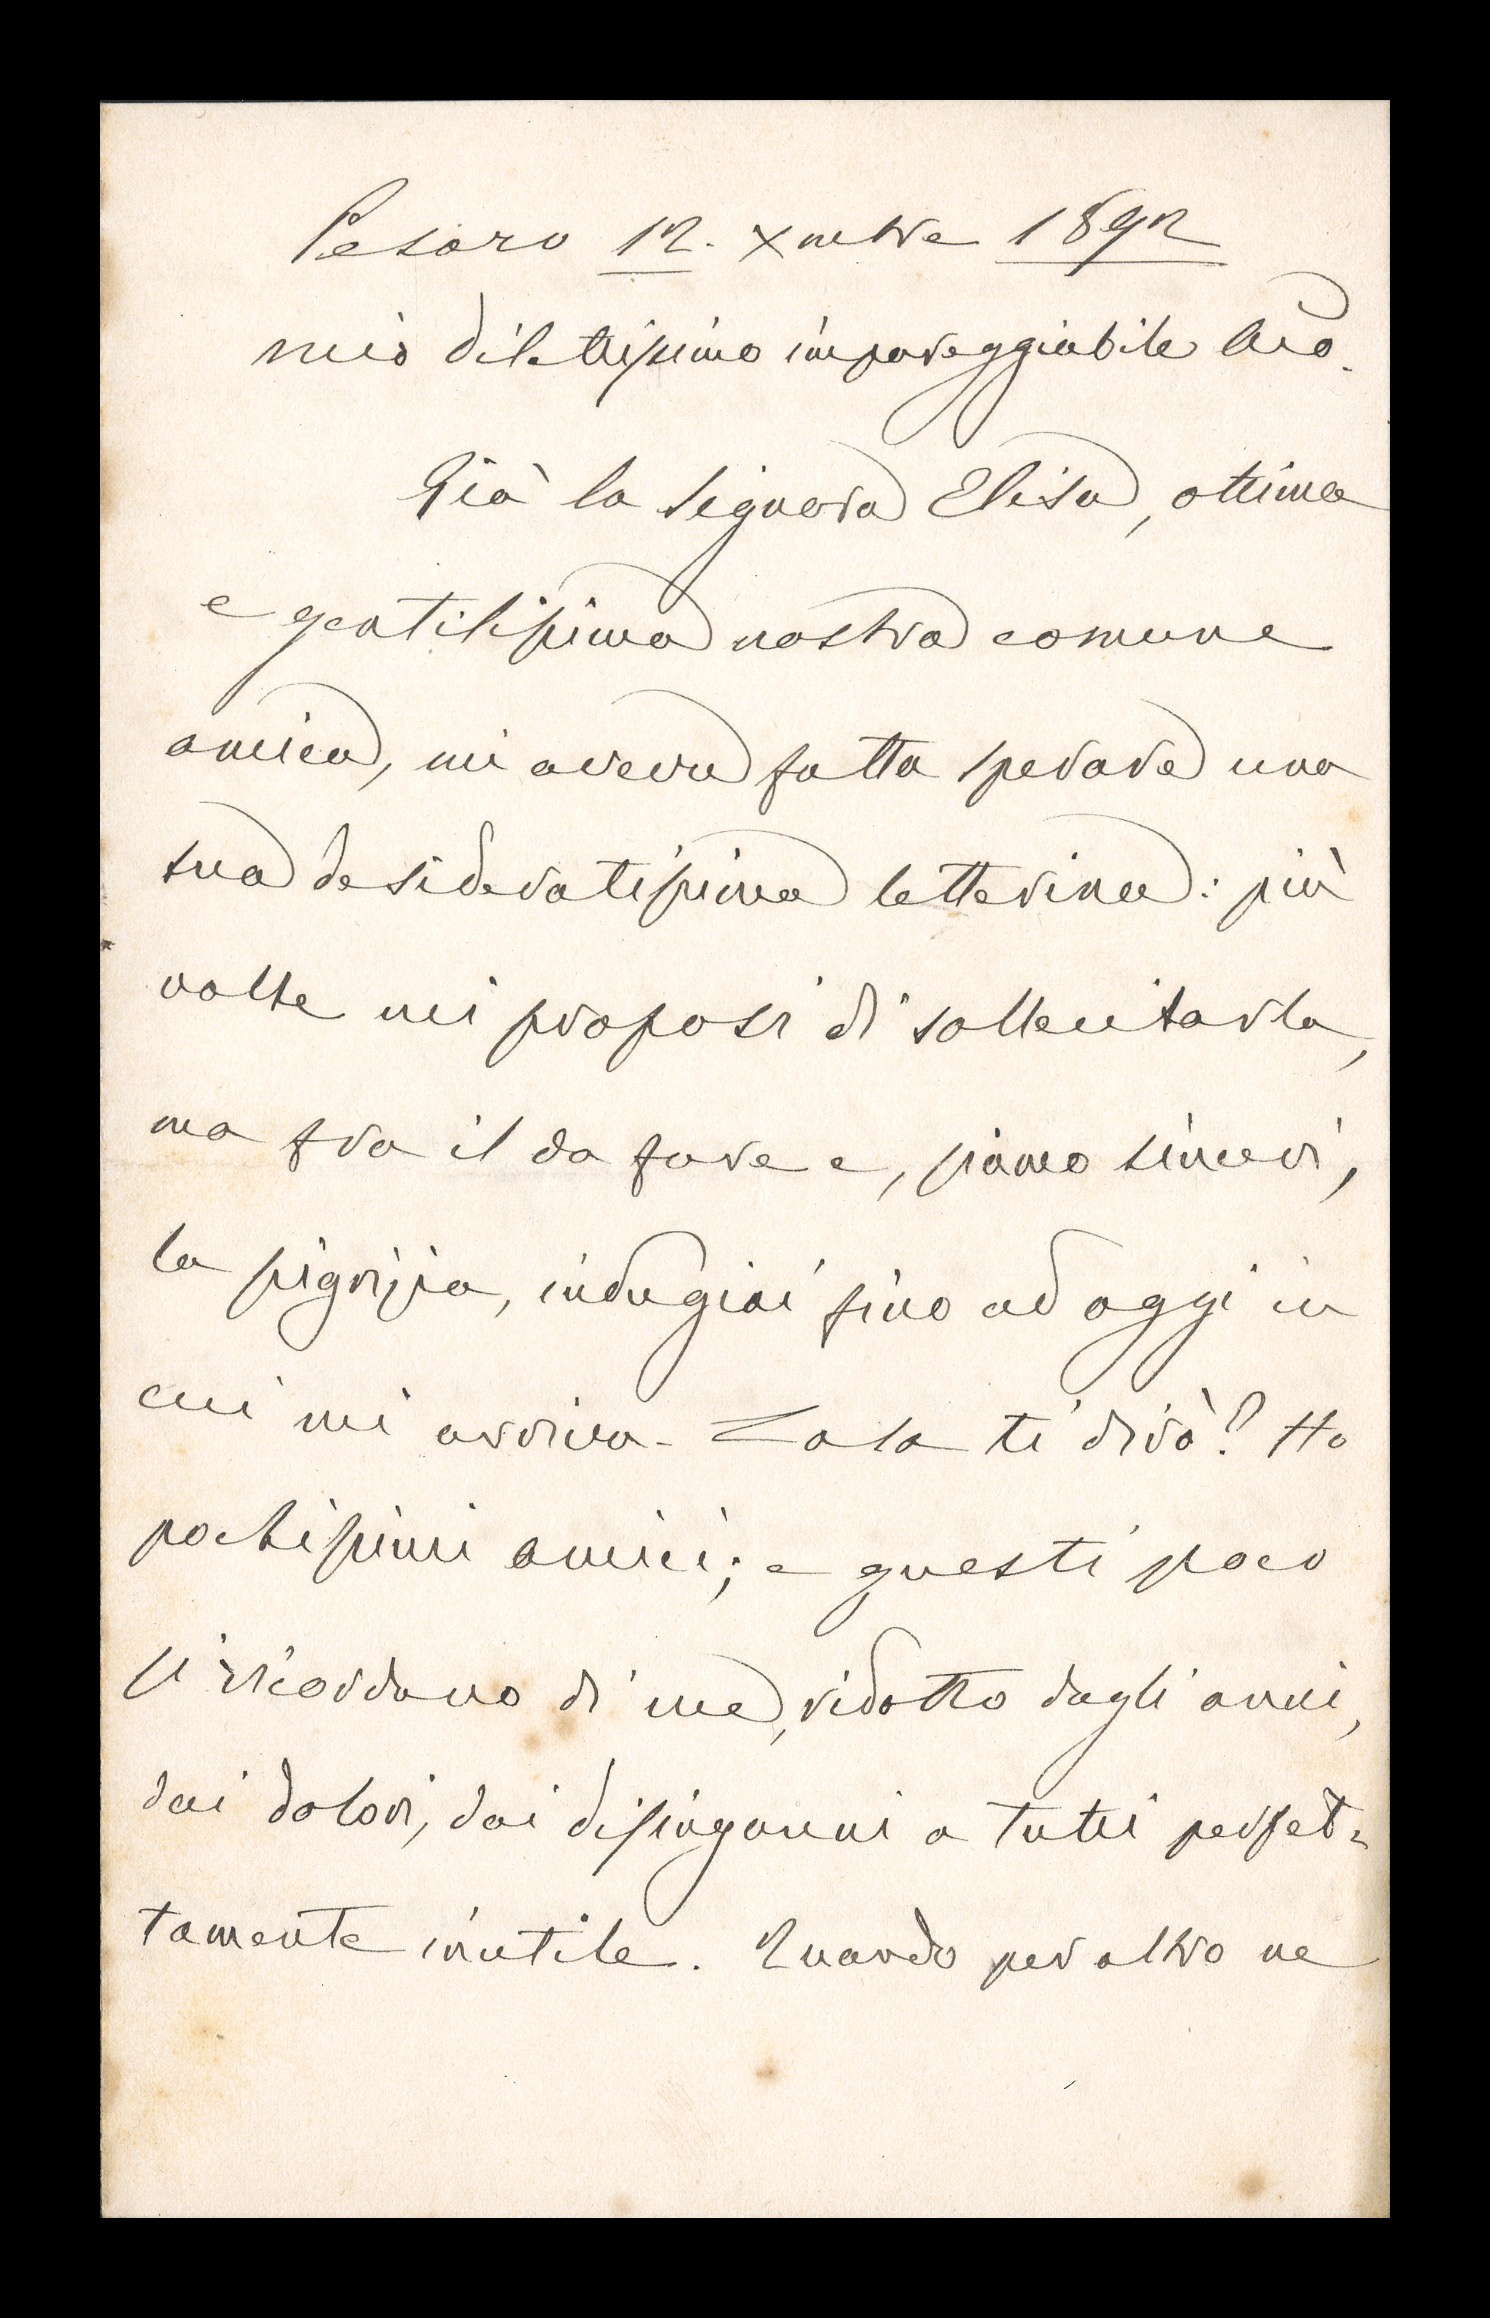 Pesaro 12. Xmbre 1892
mio dilettissimo impareggiabile
Già la Signora Elisa, ottima
e gentilissima nostra comune
amica, mi aveva fatta sperare una
sua desideratissima letterina: più
volte mi proposi di sollecitarla,
ma fra il da fare e, siamo sinceri,
la pigrizia, indugiai fino ad oggi in
cui mi arriva. Cosa ti dirò? Ho
pochissimi amici; e questi poco
si ricordano di me, ridotto dagli anni,
dai dolori, dai disinganni a tutti perfet=
tamente inutile. Quando per altro ne